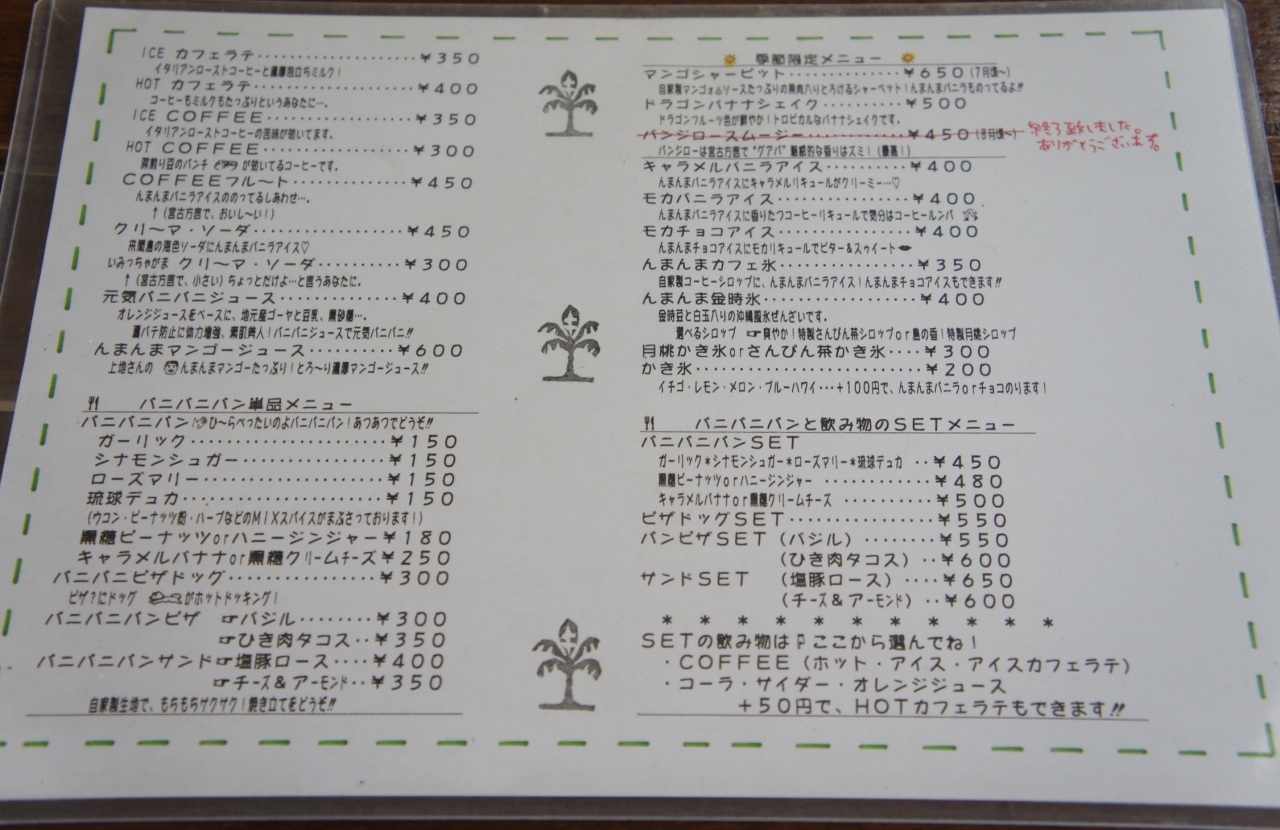 ICE カフェラテ‥‥‥‥‥‥‥¥350
イタリアンローストコーヒーと濃厚泡立ちミルク!
HOT カフェラテ‥‥‥‥‥‥‥¥400
コーヒーもミルクもたっぷりというあなたに…。
ICE COFFEE‥‥‥‥‥‥‥¥350
イタリアンローストコーヒーの苦味が効いてます。
HOT COFFEE‥‥‥‥‥‥‥¥300
黒煎り豆のパンチ が効いてるコーヒーです。
COFFEEフル〜ト‥‥‥‥‥‥¥450
んまんまバニラアイスののってるしあわせ…。
↑(宮古方言で、おいし〜い!)
クリ〜マ・ソーダ‥‥‥‥‥‥¥450
来間島の海色ソーダにんまんまバニラアイス♡
いみっちゃがま クリ〜マ・ソーダ‥‥‥‥¥300
↑(宮古方言で、小さい)ちょっとだけよ…と言うあなたに。
元気バニバニジュース‥‥‥‥‥¥400
オレンジジュースをベースに、地元産ゴーヤと豆乳、黒砂糖…。
夏バテ防止に体力増強、素肌美人!バニバニジュースで元気バニバニ!!
んまんまマンゴージュース‥‥‥‥¥600
上地さんの んまんまマンゴーたっぷり!とろ〜り濃厚マンゴージュース!!
バニバニパン単品メニュー
バニバニパン ひ〜らぺったいのよバニバニパン!あつあつでどうぞ!!
ガーリック‥‥‥‥‥‥‥‥¥150
シナモンシュガー‥‥‥‥‥‥¥150
ローズマリー‥‥‥‥‥‥‥¥150
琉球デュカ‥‥‥‥‥‥‥‥¥150
(ウコン・ピーナッツ粉・ハーブなどのMIXスパイスがまぶさっております!)
黒糖ピーナッツorハニージンジャー¥180
キャラメルバナナor黒糖クリームチーズ¥250
バニバニピザドッグ‥‥‥‥‥¥300
ピザ?にドッグ がホットドッキング!
バニバニパンピザ ☞バジル‥‥‥¥300
☞ひき肉タコス‥¥350
バニバニパンサンド☞塩豚ロース‥‥¥400
☞チーズ&アーモンド‥¥350
自家製生地で、もちもちサクサク!焼き立てをどうぞ!!
季節限定メニュー
マンゴシャービット‥‥‥‥‥‥¥650(7月頃〜)
自家製マンゴォ♨ソースたっぷりの果肉入りとろけるシャーベット!んまんまバニラものってるよ!!
ドラゴンバナナシェイク‥‥‥‥¥500
ドラゴンフルーツ色が鮮やか!トロピカルなバナナシェイクです。
バンジロースムージー‥‥‥‥‥¥450(8月頃〜)
終了致しました。
ありがとうございます。
バンジローは宮古方言で"グアバ"魅惑的な香りはズミ!(最高!)
キャラメルバニラアイス‥‥‥‥¥400
んまんまバニラアイスにキャラメルリキュールがクリーミー…♡
モカバニラアイス‥‥‥‥‥‥¥400
んまんまバニラアイスに香りたつコーヒーリキュールで気分はコーヒールンバ
モカチョコアイス‥‥‥‥‥‥¥400
んまんまチョコアイスにモカリキュールでビター&スゥイート
んまんまカフェ氷‥‥‥‥‥‥¥350
自家製コーヒーシロップに、んまんまバニラアイス!んまんまチョコアイスもできます!!
んまんま金時氷‥‥‥‥‥‥‥¥400
金時豆と白玉入りの沖縄風氷ぜんざいです。
選べるシロップ ☞爽やか!特製さんぴん茶シロップor島の香!特製月桃シロップ
月桃かき氷orさんぴん茶かき氷‥‥¥300
かき氷‥‥‥‥‥‥‥‥‥‥¥200
イチゴ・レモン・メロン・ブルーハワイ…+100円で、んまんまバニラorチョコのります!
バニバニパンと飲み物のSETメニュー
バニバニパンSET
ガーリック*シナモンシュガー*ローズマリー*琉球デュカ ‥¥450
黒糖ピーナッツorハニージンジャー ‥‥‥‥‥¥480
キャラメルバナナor黒糖クリームチーズ ‥‥‥‥¥500
ピザドッグSET‥‥‥‥‥‥¥550
パンピザSET(バジル)‥‥‥¥550
(ひき肉タコス)‥¥600
サンドSET (塩豚ロース)‥‥¥650
(チーズ&アーモンド)‥¥600
* * * * * * * * * * *
SETの飲み物は☟ここから選んでね!
・COFFEE(ホット・アイス・アイスカフェラテ)
・コーラ・サイダー・オレンジジュース
+50円で、HOTカフェラテもできます!!